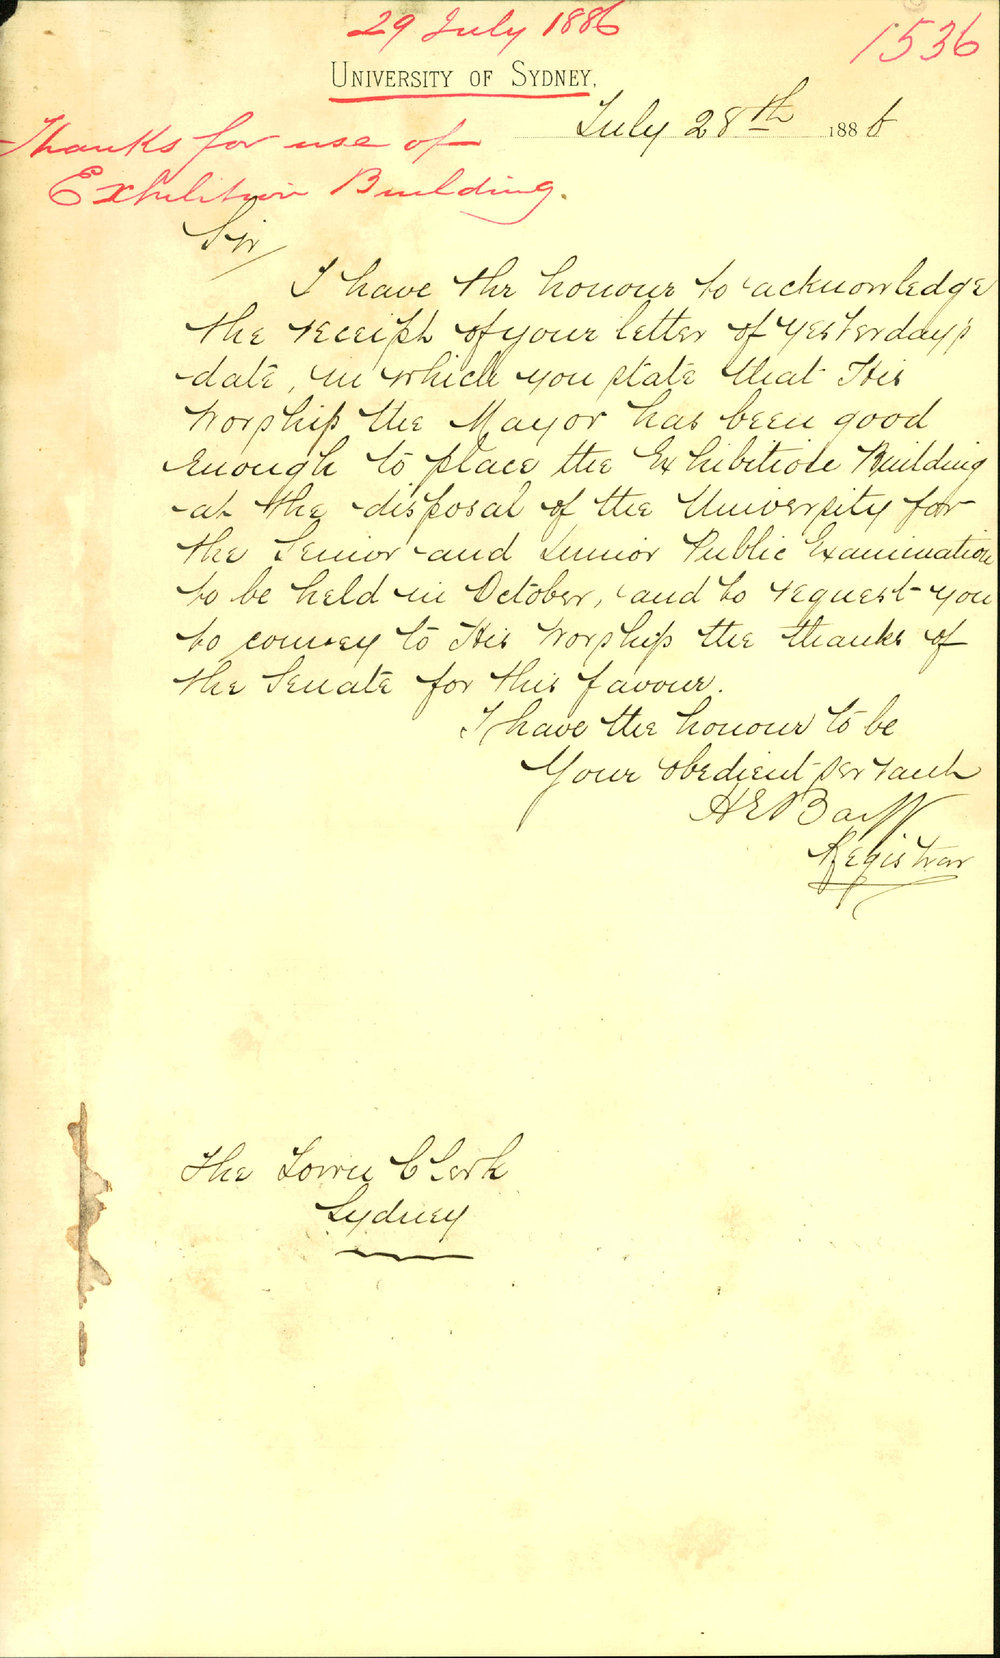 29 July 1886
1536
UNIVERSITY OF SYDNEY,
July 28th 1886
Thanks for use of
Exhibition Building.
Sir
I have the honour to acknowledge
the receipt of your letter of yesterday's
date, in which you state that His
Worship the Mayor has been good
enough to place the Exhibition Building
at the disposal of the University for
the Senior and Junior Public Examination
to be held in October, and to request you
to convey to His Worship the thanks of
the Senate for this favour.
I have the honour to be
Your obedient servant
H E Barff
Registrar
The Town Clerk
Sydney